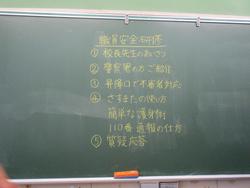 職員安全研修
① 校長先生のあいさつ
② 警察署の方ご紹介
③ 昇降口で不審者対応
④ さすまたの使い方
簡単な護身術
110番通報の仕方
⑤ 質疑応答